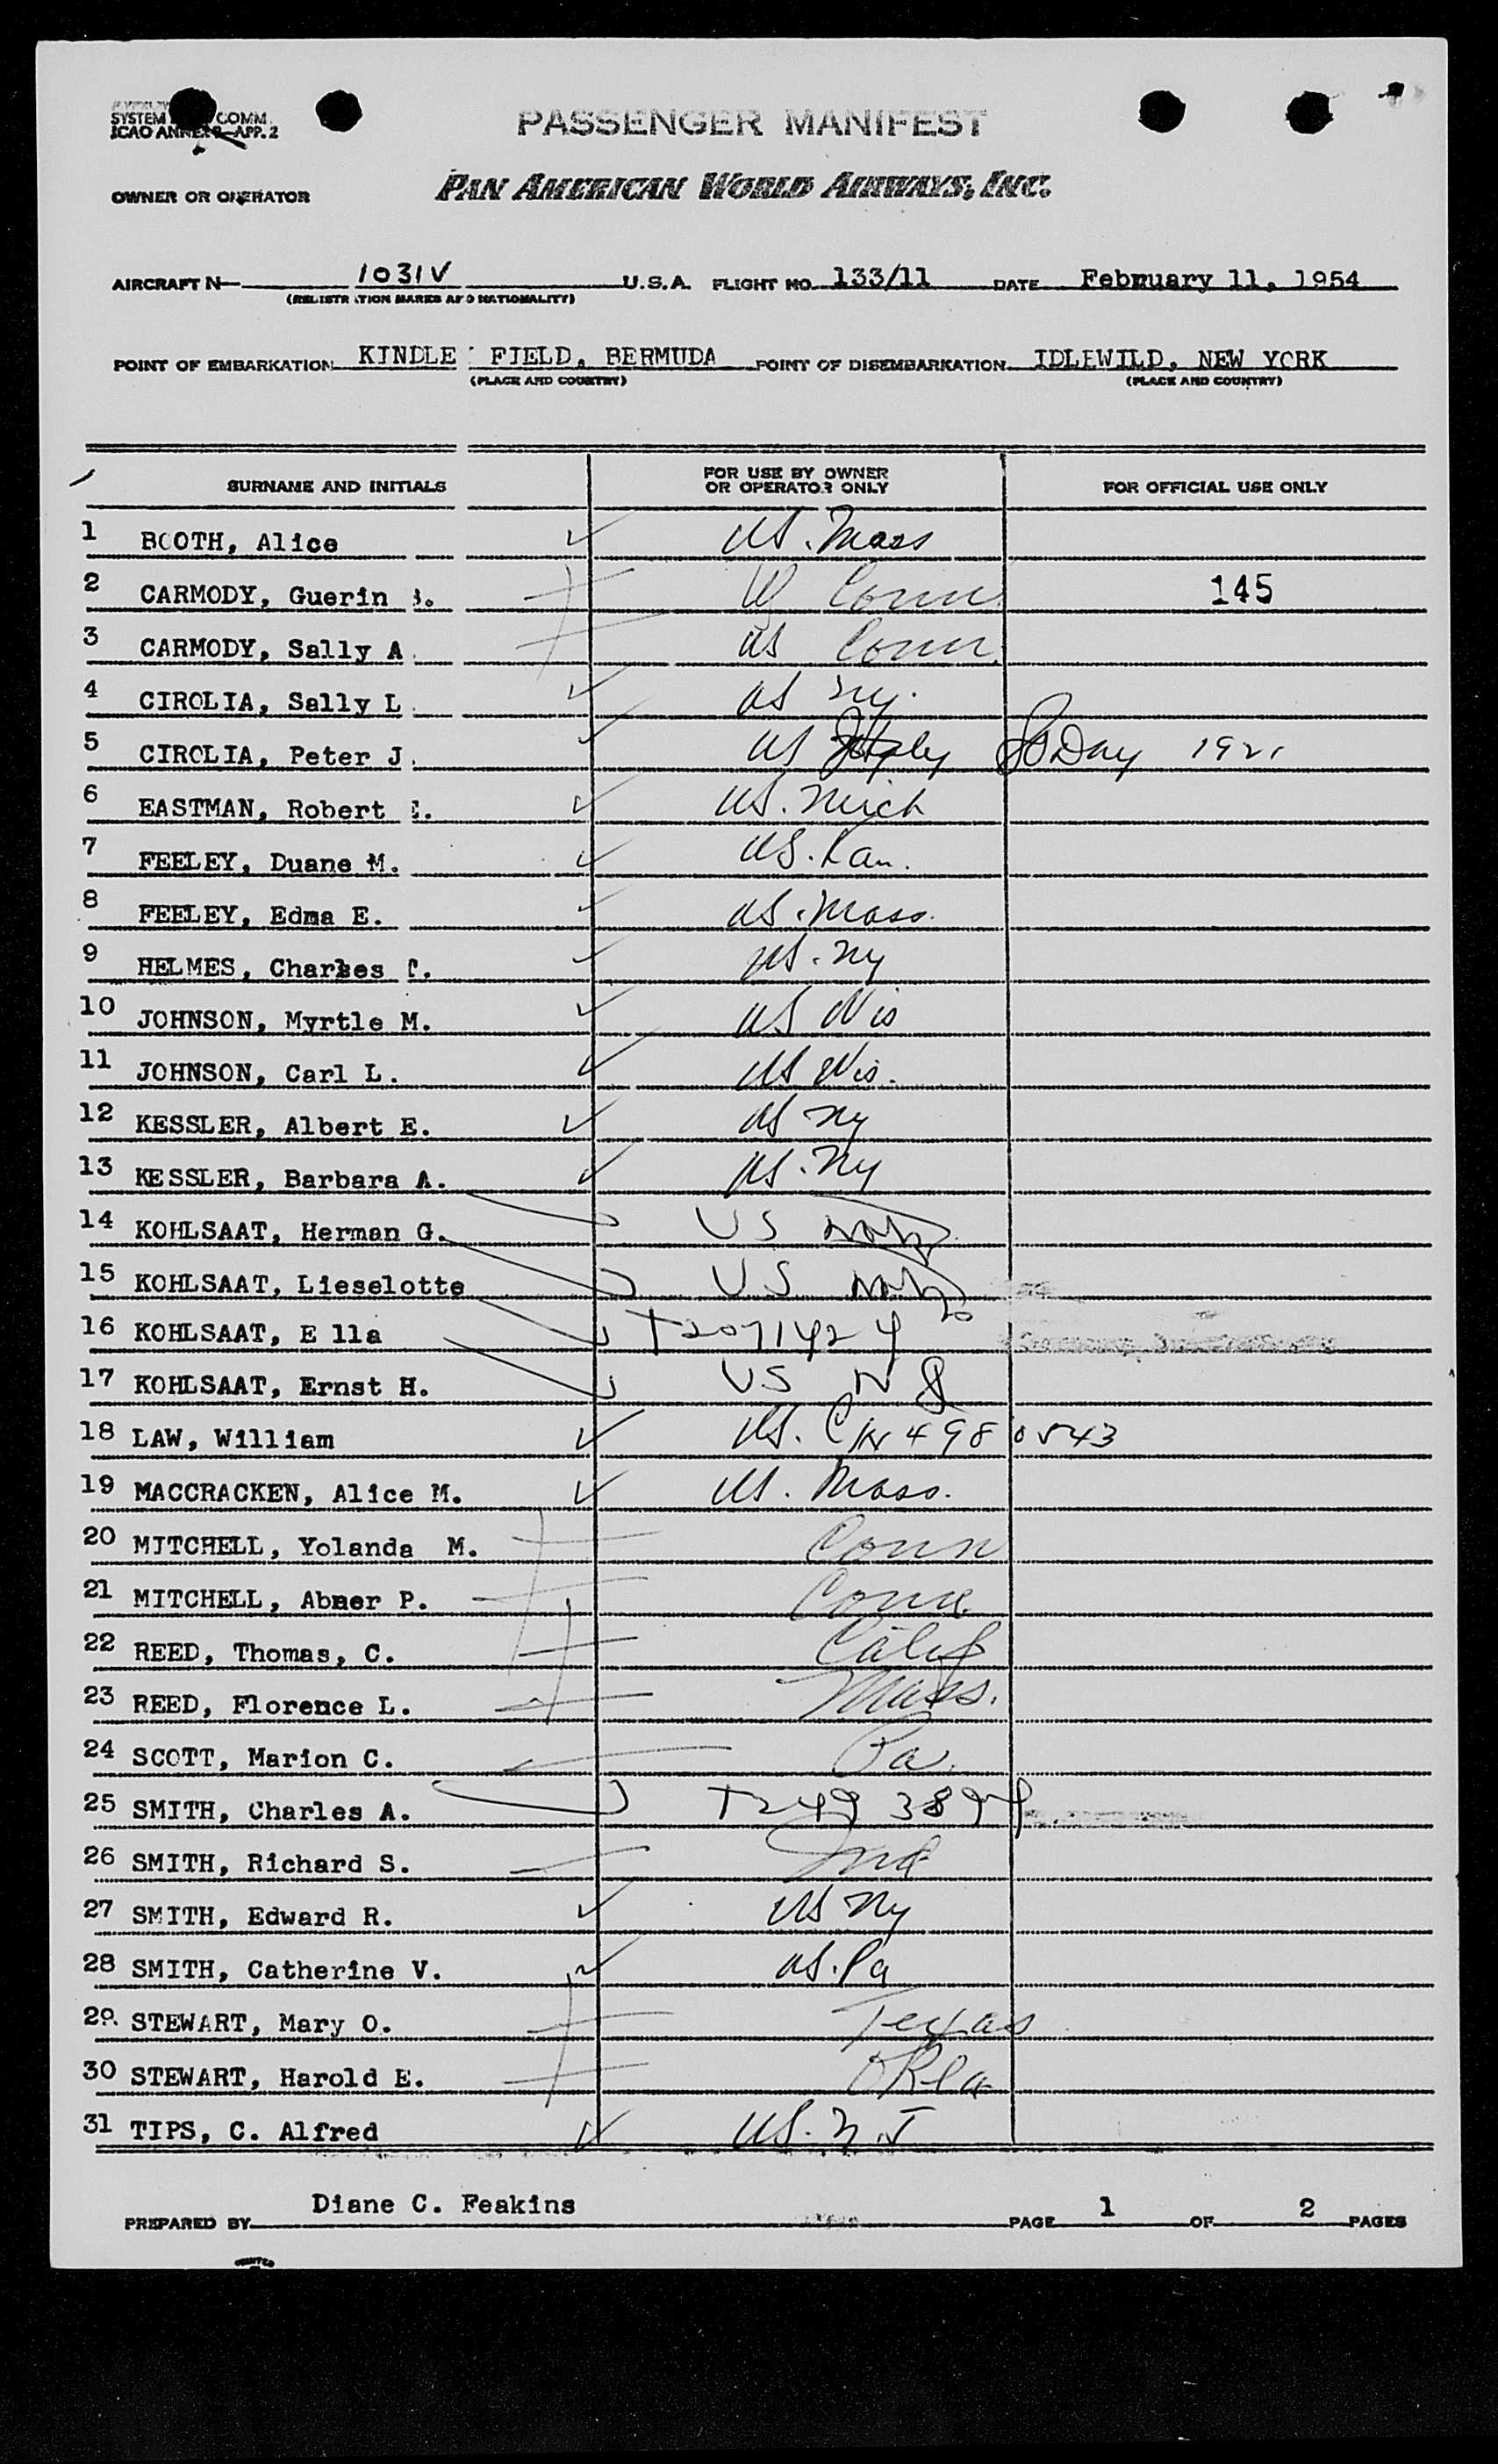 SYSTEM COMM.
ICAO ANNEX 9-APP. 2
PASSENGER MANIFEST
OWNER OR OPERATOR PAN AMERICAN WORLD AIRWAYS, INC.
AIRCRAFT N 1031V U.S.A. FLIGHT NO. 133/11 DATE February 11, 1954
(REGISTRATION MARKS AND NATIONALITY)
POINT OF EMBARKATION KINDLE FIELD, BERMUDA POINT OF DISEMBARKATION IDLEWILD, NEW YORK
(PLACE AND COUNTRY) (PLACE AND COUNTRY)
SURNAME AND INITIALS FOR USE BY OWNER OR OPERATOR ONLY FOR OFFICIAL USE ONLY
1 BOOTH, Alice US. Mass
2 CARMODY, Guerin B. Conn. 145
3 CARMODY, Sally A. US Conn.
4 CIROLIA, Sally L. US NY.
5 CIROLIA, Peter J. US Day 1921
6 EASTMAN, Robert E. US. Mich
7 FEELEY, Duane M. US. Kan.
8 FEELEY, Edma E. US. Mass.
9 HELMES, Charles C. US. NY
10 JOHNSON, Myrtle M. US Wis
11 JOHNSON, Carl L. US Wis.
12 KESSLER, Albert E. US NY
13 KESSLER, Barbara A. US. NY
14 KOHLSAAT, Herman G. US
15 KOHLSAAT, Lieselotte US
16 KOHLSAAT, E lla T2071424
17 KOHLSAAT, Ernst H. US N
18 LAW, William US. 4980543
19 MACCRACKEN, Alice M. US. Mass.
20 MITCHELL, Yolanda M. Conn
21 MITCHELL, Abner P. Conn.
22 REED, Thomas, C. Calif
23 REED, Florence L. Mass.
24 SCOTT, Marion C. Pa.
25 SMITH, Charles A. T249 389
26 SMITH, Richard S. Ind
27 SMITH, Edward R. US NY
28 SMITH, Catherine V. US. Pa
29 STEWART, Mary O. Texas
30 STEWART, Harold E. Okla
31 TIPS, C. Alfred US. N.J
PREPARED BY Diane C. Feakins PAGE 1 OF 2 PAGES